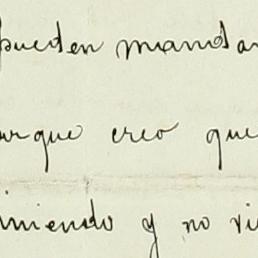 pueden mandar
que creo que
iniendo y no vi